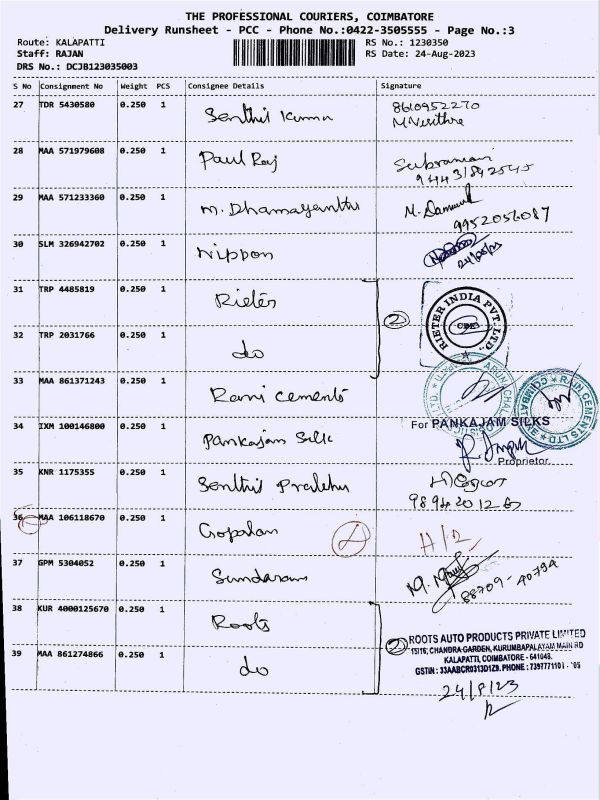 THE PROFESSIONAL COURIERS, COIMBATORE
Delivery Runsheet - PCC - Phone No.:0422-3505555 - Page No.:3
Route: KALAPATTI RS No.: 1230350
Staff: RAJAN RS Date: 24-Aug-2023
DRS No.: DCJB123035003
S No Consignment No Weight PCS Consignee Details Signature
27 TDR 5430580 0.250 1 Senthil Kumar 8610952270
28 MAA 571979608 0.250 1 Paul Raj
29 MAA 571233360 0.250 1 M. Dhamayanthi
9952056087
30 SLM 326942702 0.250 1 Nippon
31 TRP 4485819 0.250 1 Rieter
2 RIETER INDIA PVT. LTD.
32 TRP 2031766 0.250 1 do
33 MAA 861371243 0.250 1 Rami cements
RAIN CEMENTS LTD COIMBATORE
34 IXM 100146800 0.250 1 Pankajam Silk For PANKAJAM SILKS
Proprietor
35 KNR 1175355 0.250 1 Senthil Prabhu
36 MAA 106118670 0.250 1 Gopalan
37 GPM 5304052 0.250 1 Sundaram
88709-40794
38 KUR 4000125670 0.250 1 Roots
2 ROOTS AUTO PRODUCTS PRIVATE LIMITED
15/16, CHANDRA GARDEN, KURUMBAPALAYAM MAIN RD
39 MAA 861274866 0.250 1 do KALAPATTI, COIMBATORE - 641048.
GSTIN : 33AABCR0313D1Z9. PHONE : 7397771101 - '05
24/8/23